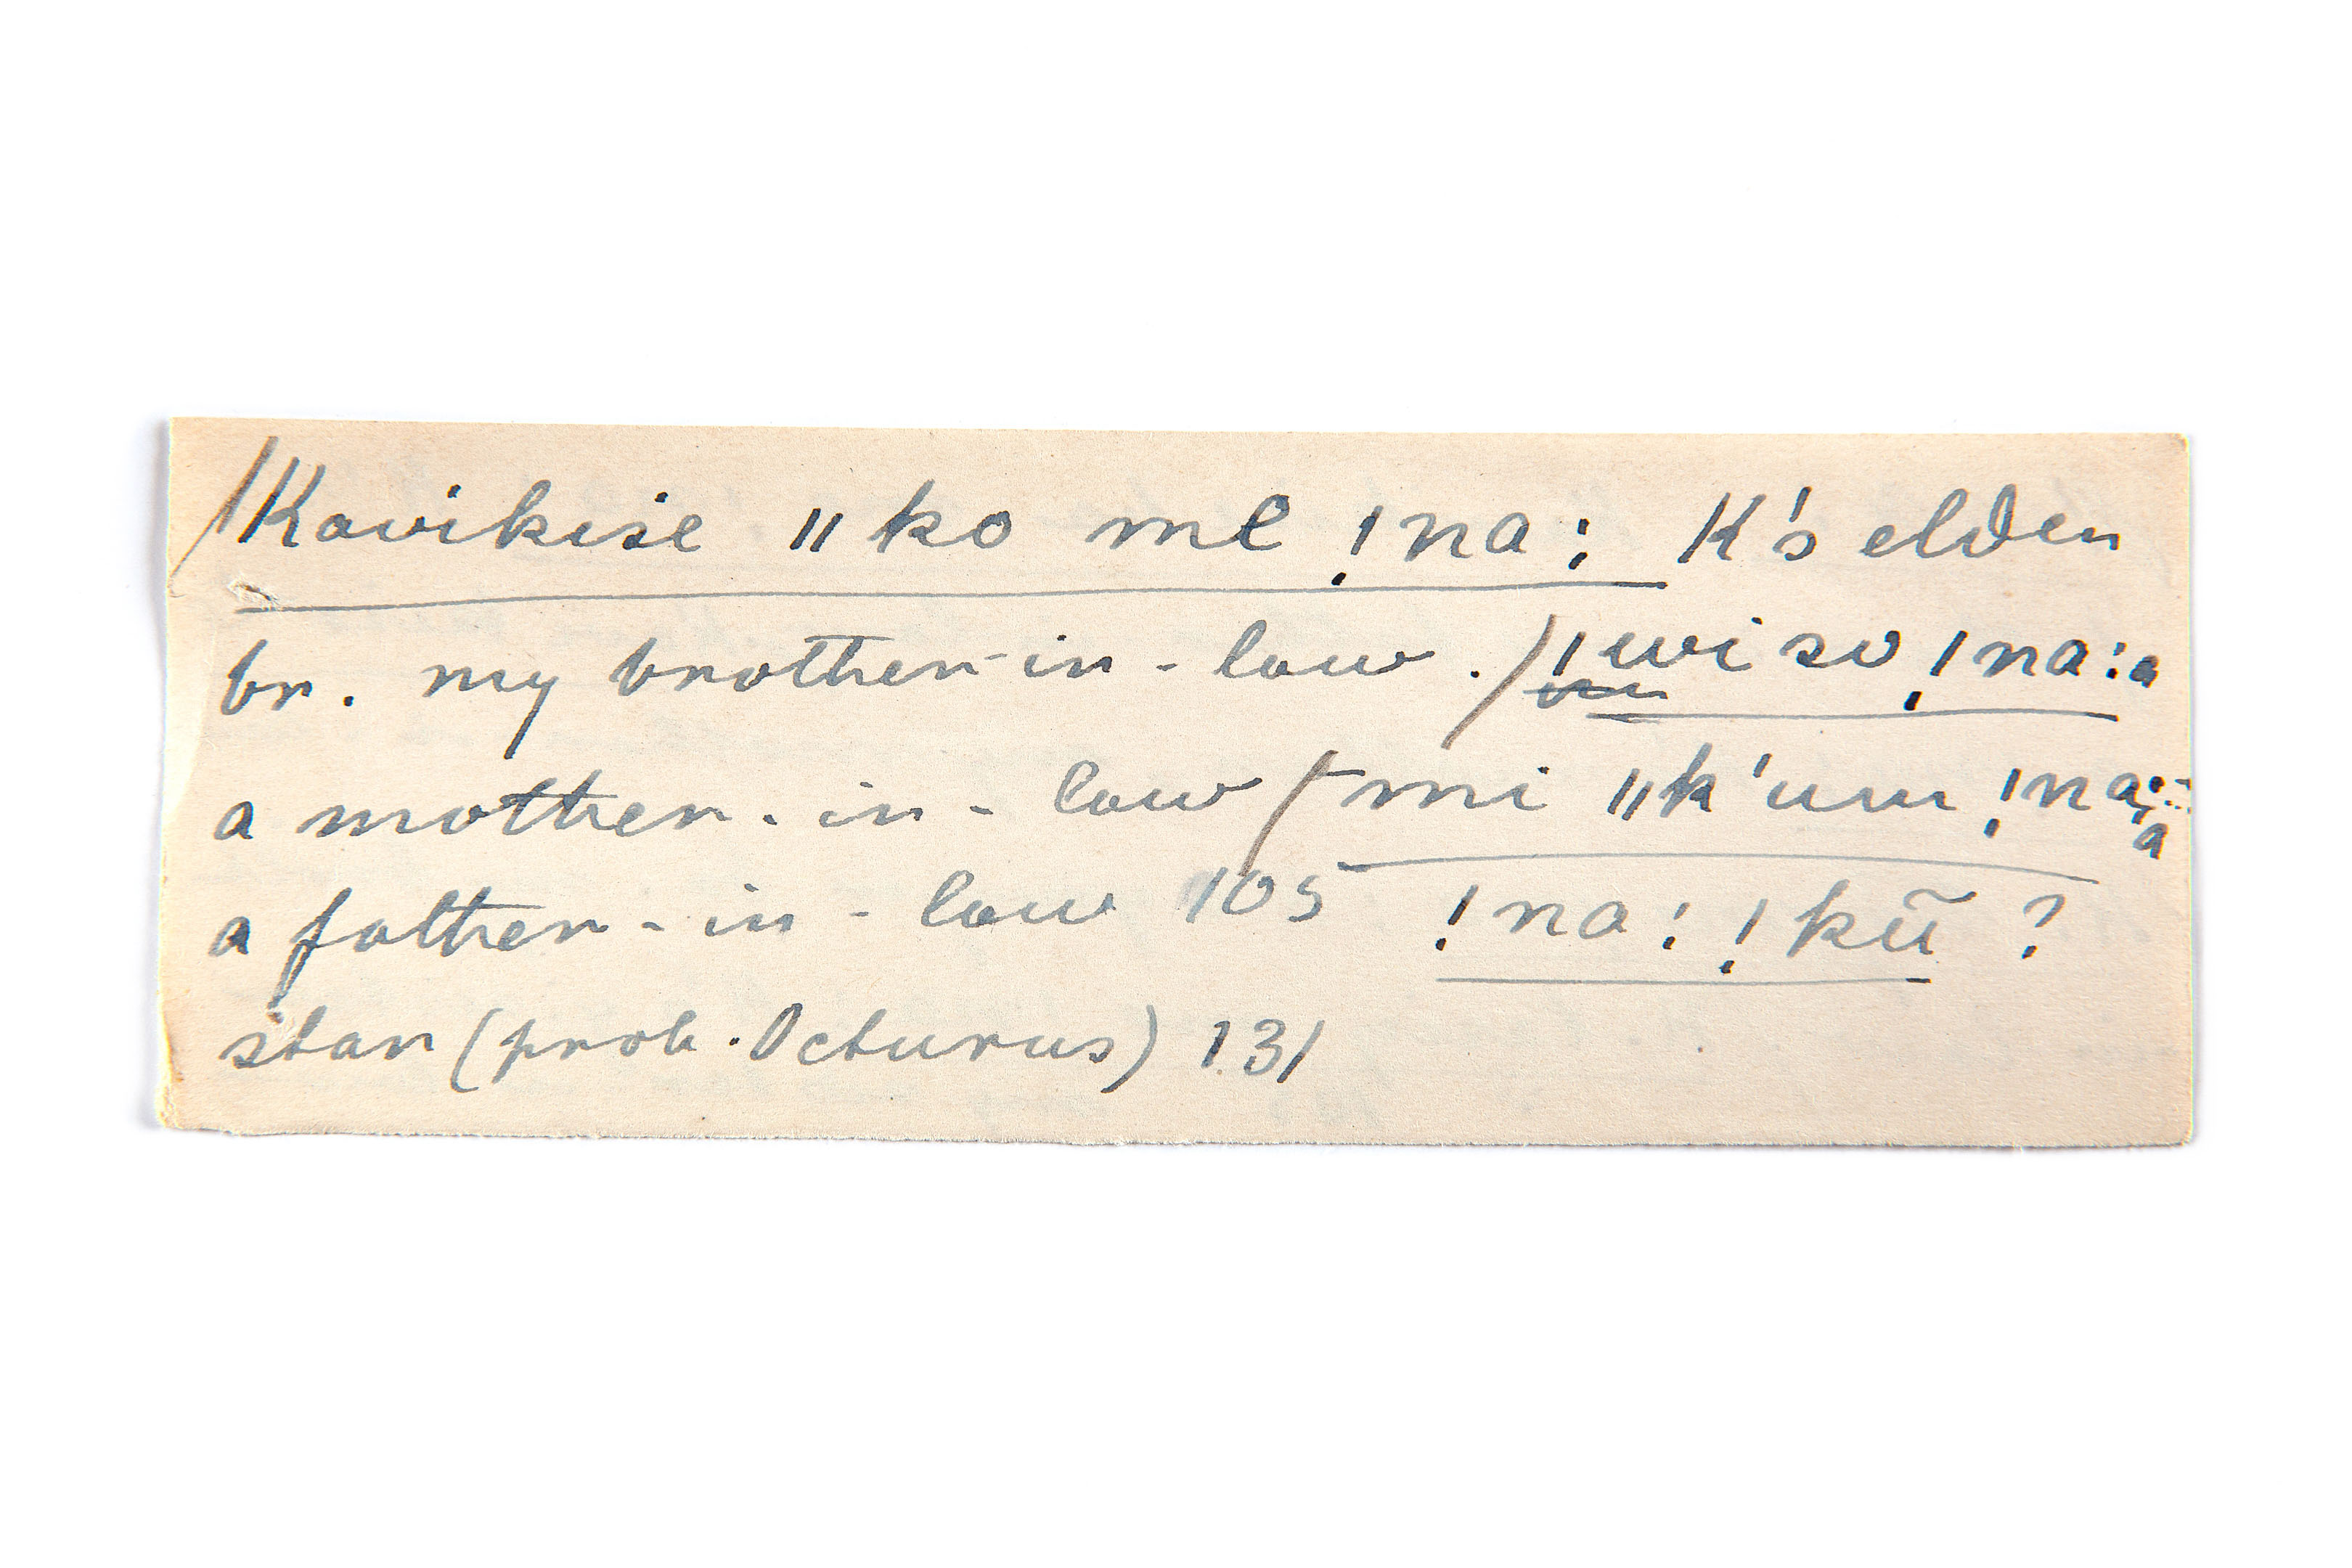 /Kavikise ǁko me ǃna: K's elder
br. my brother-in-law.) ǀwi so ǃna:a
a mother-in-law / mi ǁk'um ǃna:a
a father-in-law 105 ǃna: ǃkũ ?
star (prob. Octurus) 131